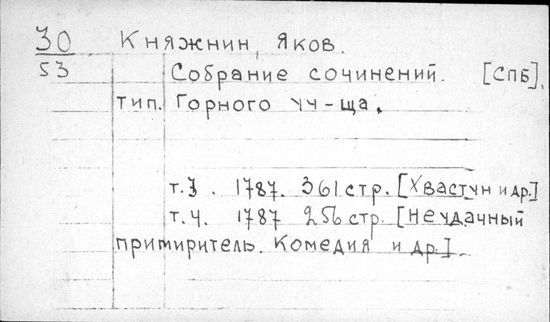 30 Княжнин, Яков.
53 Собрание сочинений. [СПБ],
тип. Горного уч-ща.
т.3. 1787. 361 стр. [Хвастун и др.]
т.4. 1787 256 стр. [Неудачный
примиритель. Комедия и др.]